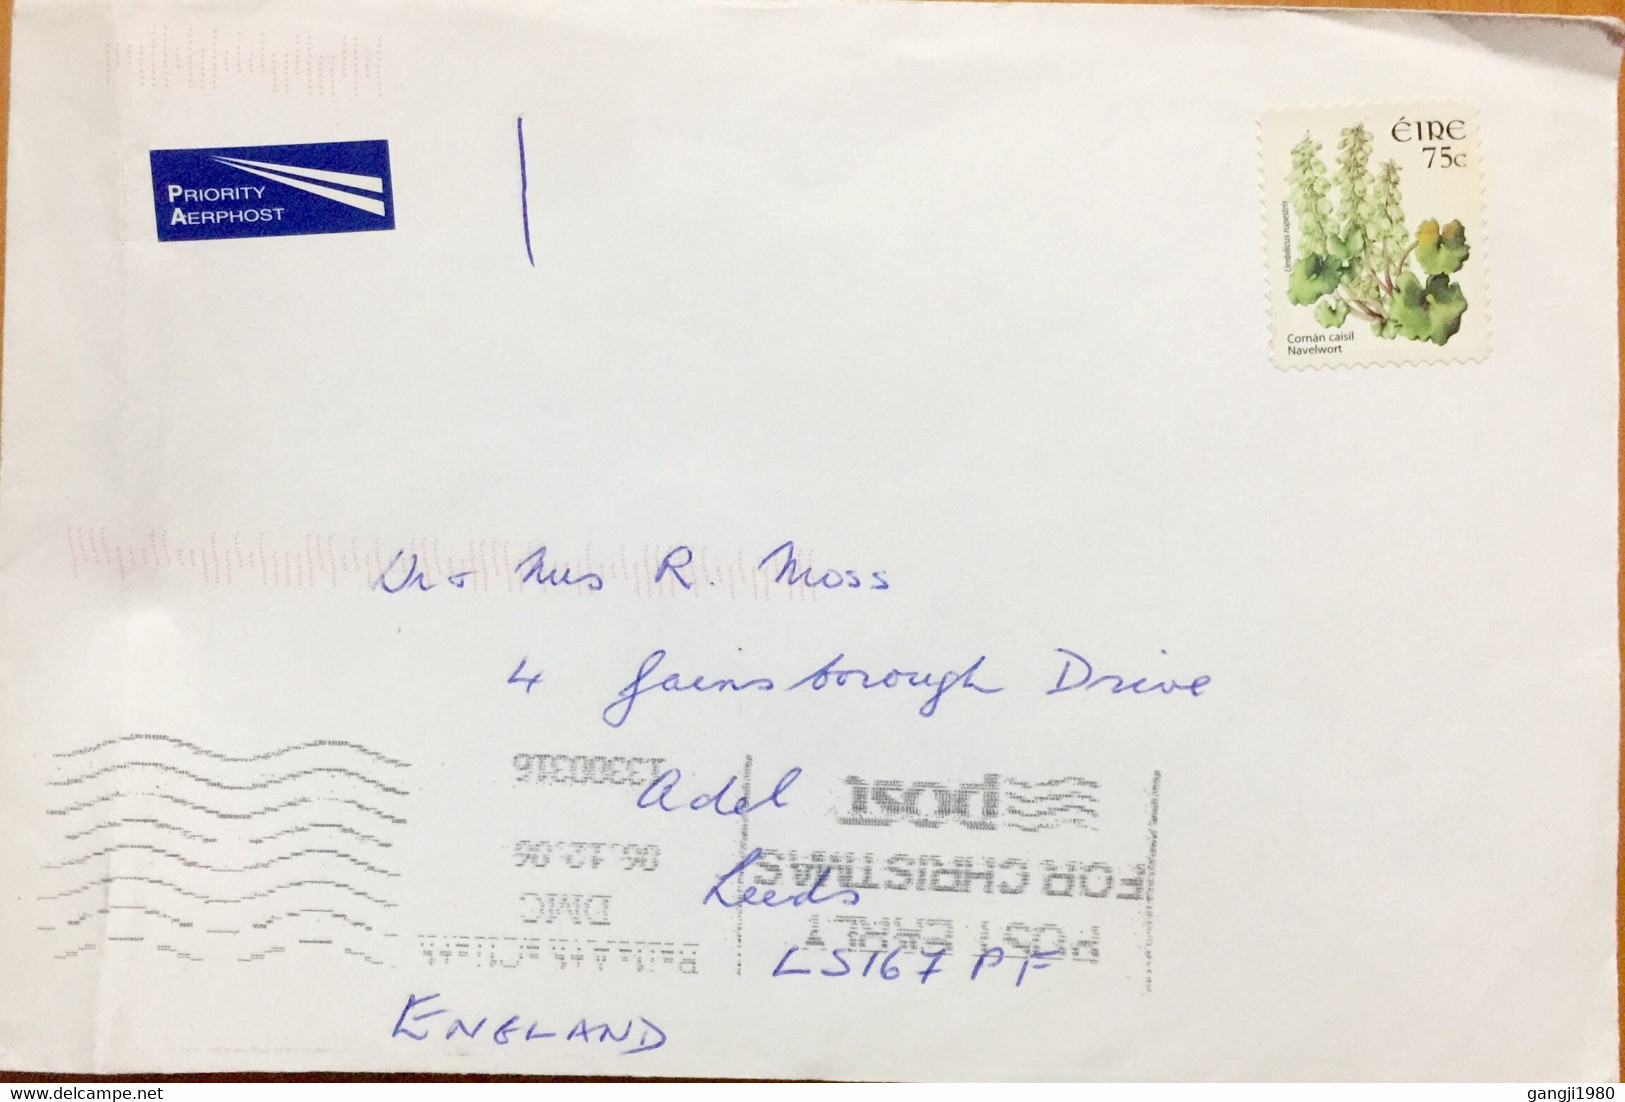 PRIORITY
AERPHOST
ÉIRE
75c
Umbilicus rupestris
Cornán caisil
Navelwort
Dr + Mrs R. Moss
4 Gainsborough Drive
Adel
Leeds
LS16 7PF
ENGLAND
Baile Átha Cliath
DMC
06.12.06
13300316
POST EARLY
FOR CHRISTMAS
post
www.delcampe.net
gangji1980